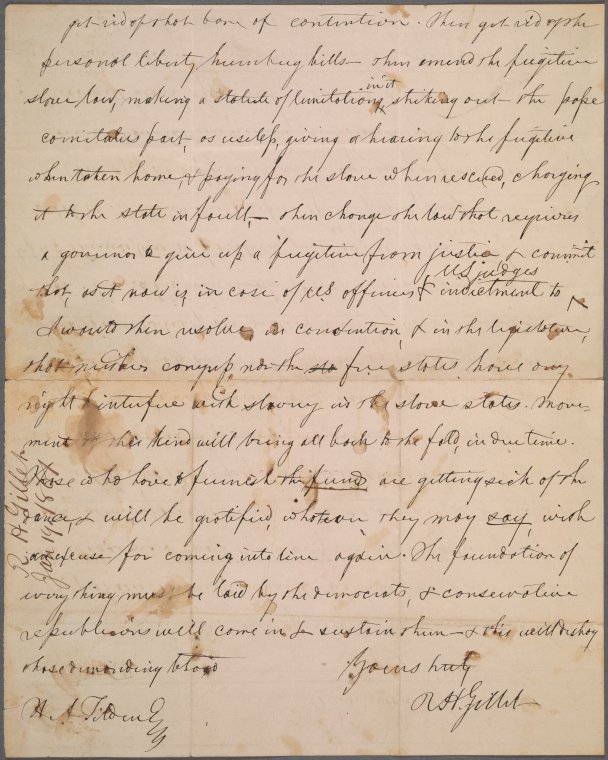 get rid of that bone of contention. Then get rid of the
personal liberty humbug bills - then amend the fugitive
slave law, making a statute of limitations in it, striking out the posse
comitatus part, as useless, giving a hearing to the fugitive
when taken home, & paying for the slave when rescued, charging
it to the state in fault, - then change the law that requires
a governor to give up a fugitive from justice & commit
that, as it now is, in case of US officers & indictment to US judges
I would then resolve in convention, & in the legislature,
that neither congress, nor the sta free states, have any
right to interfere with slavery in the slave states. Move-
ment of this kind will bring all back to the fold, in due time.
Those who have to furnish the funds are getting sick of the
& will be gratified, whatever they may say, with
an excuse for coming into line again. The foundation of
everything must be laid by the democrats, & conservative
republicans will come in & sustain them - & this will destroy
those demanding blood
Yours truly
R H Gillet
Tilden Esq
R. H. Gillet
Jan 19, 18